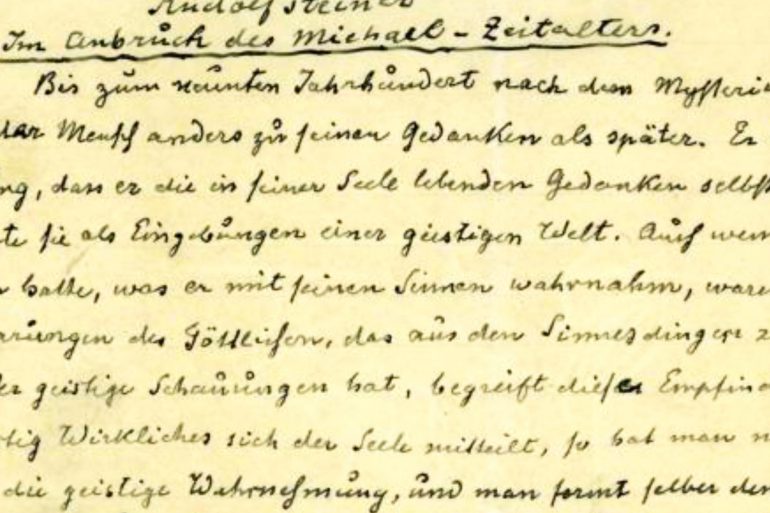 Rudolf Steiner
Im Anbruch des Michael-Zeitalters.
Bis zum neunten Jahrhundert nach dem Mysteri
der Mensch anders zu seinen Gedanken als später. Er
ng, dass er die in seiner Seele lebenden Gedanken selbst
te sie als Eingebungen einer geistigen Welt. Auch wen
hatte, was er mit seinen Sinnen wahrnahm, ware
arungen des Göttlichen, das aus den Sinnesdingen z
er geistige Schauungen hat, begreift diese Empfin
stig Wirkliches sich der Seele mitteilt, so hat man n
die geistige Wahrnehmung, und man formt selber den